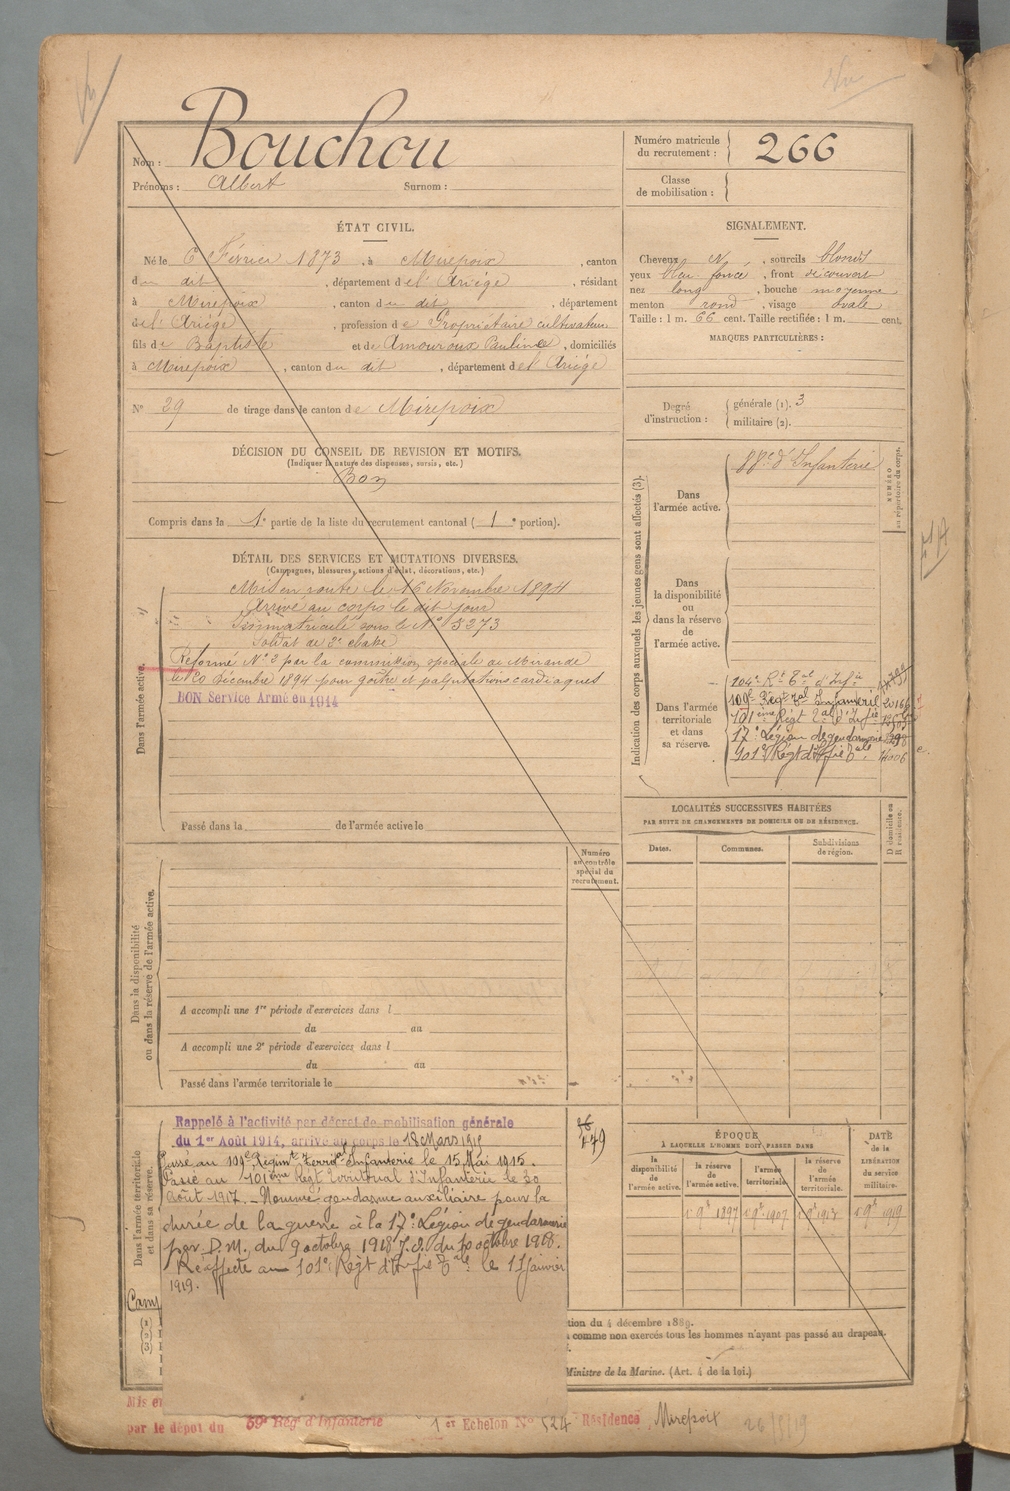 Nom : Bouchou
Prénoms : Albert Surnom :
Numéro matricule
du recrutement : 266
Classe
de mobilisation :
ÉTAT CIVIL.
Né le 6 Février 1873, à Mirepoix, canton
du dit, département de l'Ariége, résidant
à Mirepoix, canton du dit, département
de l'Ariége, profession de Propriétaire cultivateur
fils de Baptiste et de Amouroux Pauline, domiciliés
à Mirepoix, canton du dit, département de l'Ariége
N° 29 de tirage dans le canton de Mirepoix
SIGNALEMENT.
Cheveux N, sourcils blonds
yeux bleu foncé, front découvert
nez long, bouche moyenne
menton rond, visage ovale
Taille : 1 m. 66 cent. Taille rectifiée : 1 m. cent.
MARQUES PARTICULIÈRES :
Degré
d'instruction :
générale (1). 3
militaire (2).
DÉCISION DU CONSEIL DE REVISION ET MOTIFS.
(Indiquer la nature des dispenses, sursis, etc.)
Bon
Compris dans la 1e partie de la liste du recrutement cantonal (1e portion).
DÉTAIL DES SERVICES ET MUTATIONS DIVERSES.
(Campagnes, blessures, actions d'éclat, décorations, etc.)
Dans l'armée active.
Mis en route le 16 Novembre 1894
Arrivé au corps le dit jour
Immatriculé sous le N° 5273
Soldat de 2e classe
Réformé N° 2 par la commission spéciale de Mirande
le 20 Décembre 1894 pour goître et palpitations cardiaques
BON Service Armé en 1914
Passé dans la de l'armée active le
Indication des corps auxquels les jeunes gens sont affectés (3).
NUMÉRO
au répertoire du corps.
Dans
l'armée active.
88e d'Infanterie
Dans
la disponibilité
ou
dans la réserve
de
l'armée active.
Dans l'armée
territoriale
et dans
sa réserve.
109e Régt Tal Infanterie
101ème Régt Tal d'Infie
17e Légion de gendarmerie
101e Régt d'Infie Tale
LOCALITÉS SUCCESSIVES HABITÉES
PAR SUITE DE CHANGEMENTS DE DOMICILE OU DE RÉSIDENCE.
D domicile ou
R résidence.
Dates. Communes. Subdivisions
de région.
Numéro
au contrôle
spécial du
recrutement.
Dans la disponibilité
ou dans la réserve de l'armée active.
A accompli une 1re période d'exercices dans l
du au
A accompli une 2e période d'exercices dans l
du au
Passé dans l'armée territoriale le
Dans l'armée territoriale
et dans sa réserve.
Rappelé à l'activité par décret de mobilisation générale
du 1er Août 1914, arrivé au corps le 18 Mars 1915
Passé au 109e Régimt territ. Infanterie le 15 Mai 1915.
Passé au 101ème Régt Territorial d'Infanterie le 30
Août 1917. - Nommé gendarme auxiliaire pour la
durée de la guerre à la 17e Légion de gendarmerie
par D.M. du 9 octobre 1918 J.O. du 10 octobre 1918.
Réaffecté au 101e Régt d'Infie Tale le 11 Janvier
1919.
ÉPOQUE
À LAQUELLE L'HOMME DOIT PASSER DANS
la
disponibilité
de
l'armée active.
la réserve
de
l'armée active.
l'armée
territoriale.
la réserve
de
l'armée
territoriale.
DATE
de la
LIBÉRATION
du service
militaire.
Camp
(1)
(2)
(3)
tion du 4 décembre 1889.
comme non exercés tous les hommes n'ayant pas passé au drapeau.
Ministre de la Marine. (Art. 4 de la loi.)
Mis en
par le dépot du 59e Rég. d'Infanterie 1er Echelon N° 524 Résidence Mirepoix